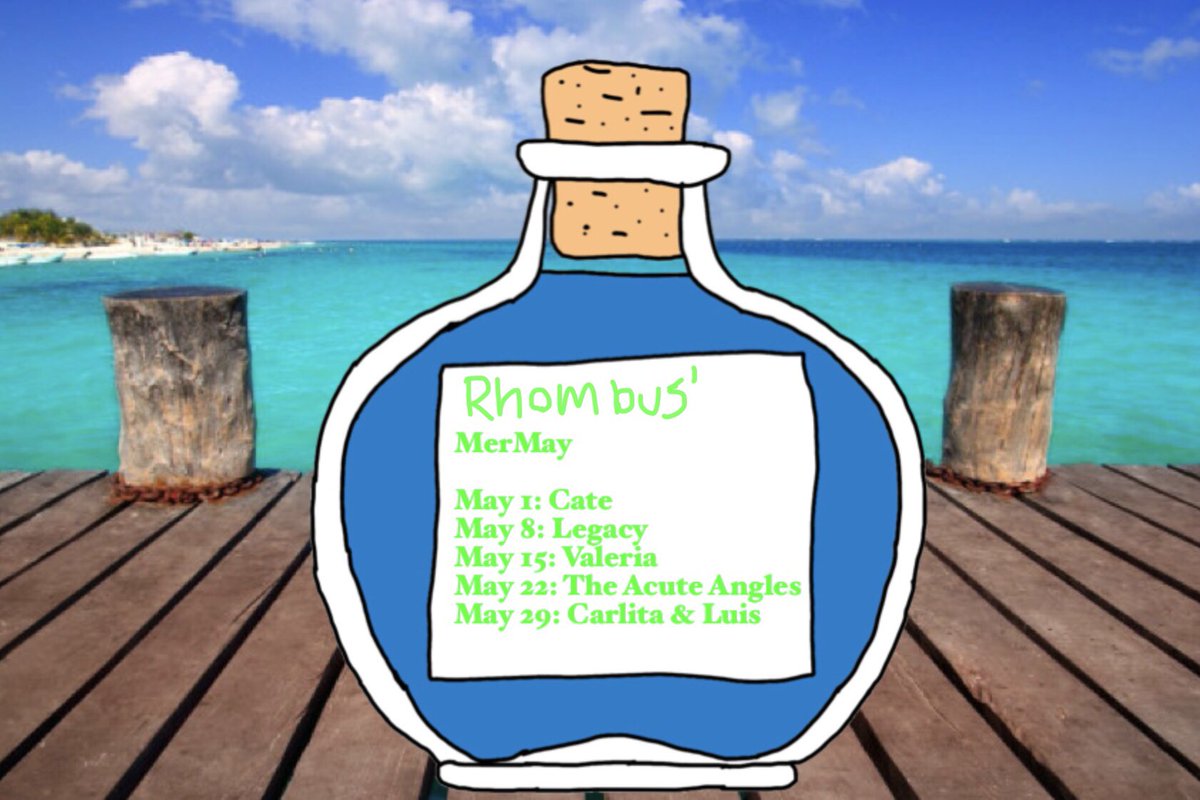 Rhombus'
MerMay
May 1: Cate
May 8: Legacy
May 15: Valeria
May 22: The Acute Angles
May 29: Carlita & Luis